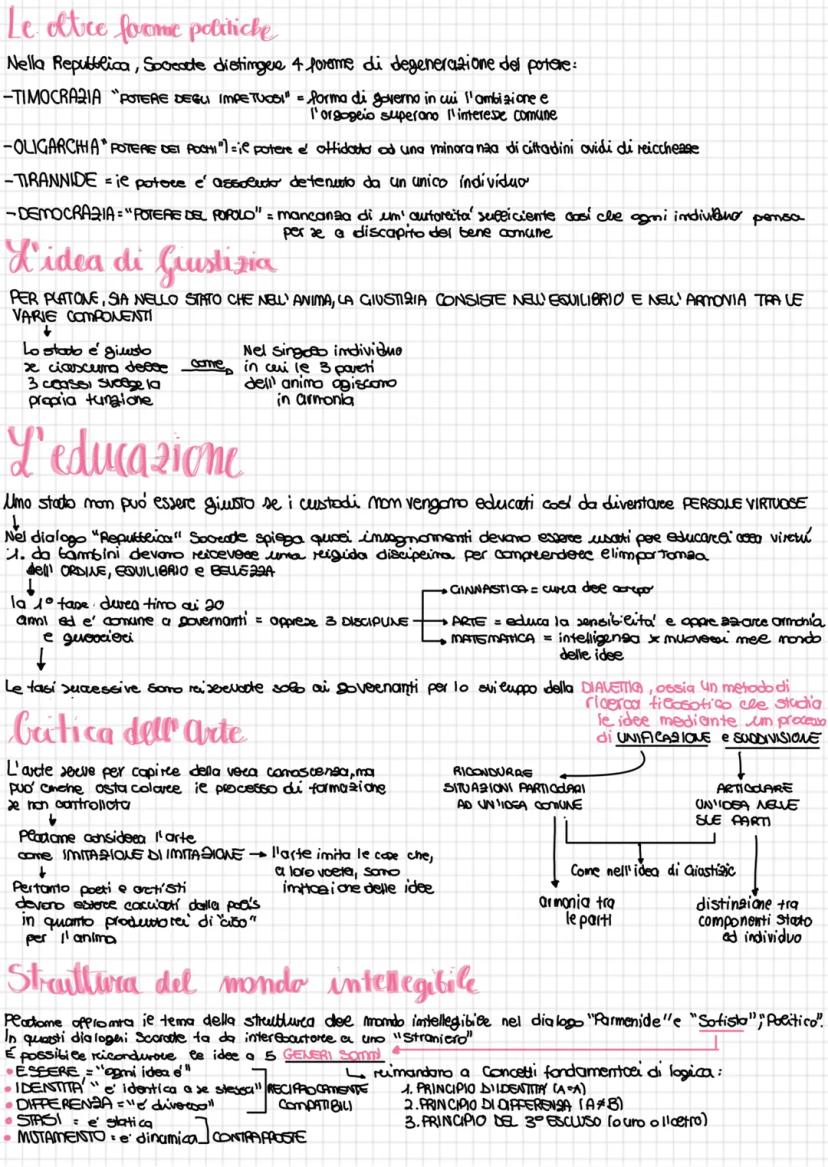 Le altre forme politiche
Nella Repubblica, Socrate distingue 4 forme di degenerazione del potere:
-TIMOCRAZIA "POTERE DEGLI IMPETUOSI" = forma di governo in cui l'ambizione e
l'orgoglio superano l'interesse comune
-OLIGARCHIA "POTERE DEI POCHI") = il potere e' affidato ad una minoranza di cittadini avidi di ricchezze
-TIRANNIDE = il potere e' assoluto detenuto da un unico individuo
-DEMOCRAZIA = "POTERE DEL POPOLO" = mancanza di un' autorita' sufficiente così che ogni individuo pensa
per se a discapito del bene comune
L'idea di Giustizia
PER PLATONE, SIA NELLO STATO CHE NELL'ANIMA, LA GIUSTIZIA CONSISTE NELL'EQUILIBRIO E NELL'ARMONIA TRA LE
VARIE COMPONENTI
Lo stato e' giusto
se ciascuna delle
3 classi svolge la
propria funzione
come
Nel singolo individuo
in cui le 3 parti
dell' anima agiscono
in armonia
L'educazione
Uno stato non può essere giusto se i custodi non vengono educati così da diventare PERSOLE VIRTUOSE
Nel dialogo "Repubblica" Socrate spiega quali insegnamenti devono essere usati per educarci alla virtú
1. da bambini devono ricevere una rigida disciplina per comprendere l'importanza
dell' ORDINE, EQUILIBRIO e BELLEZZA
la 1° fase dura fino ai 20
anni ed e' comune a governanti = apprese 3 DISCIPLINE
e guerrieri
GINNASTICA = cura del corpo
ARTE = educa la sensibilita' e apprezzare armonia
MATEMATICA = intelligenza x muoversi nel mondo
delle idee
Le fasi successive sono riservate solo ai governanti per lo sviluppo della DIALETTICA, ossia un metodo di
ricerca filosofico che studia
le idee mediante un processo
di UNIFICAZIONE e SUDDIVISIONE
Critica dell'Arte
L'arte serve per capire della vera conoscenza, ma
puo' anche ostacolare il processo di formazione
se non controllata
Platone considera l'arte
come IMITAZIONE DI IMITAZIONE → l'arte imita le cose che,
a loro volta, sono
imitazione delle idee
Pertanto poeti e artisti
devono essere cacciati dalla polis
in quanto produttori di "cibo"
per l'anima
RICONDURRE
SITUAZIONI PARTICOLARI
AD UN'IDEA COMUNE
ARTICOLARE
UN'IDEA NELLE
SUE PARTI
Come nell'idea di Giustizia
armonia tra
le parti
distinzione tra
componenti stato
ed individuo
Struttura del mondo intellegibile
Platone affronta il tema della struttura del mondo intellegibile nel dialogo "Parmenide" e "Sofista", "Politico".
In questi dialoghi Socrate fa da interlocutore a uno "Straniero"
E possibile ricondurre le idee a 5 GENERI SOMMI
• ESSERE = "ogni idea é"
• IDENTITA' "e' identica a se stessa"
• DIFFERENZA = "e' diverso"
RECIPROCAMENTE
COMPATIBILI
• STASI = e' statica
• MUTAMENTO = e' dinamica
CONTRAPPOSTE
rimandano a Concetti fondamentali di logica:
1. PRINCIPIO D'IDENTITA' (A=A)
2. PRINCIPIO DI DIFFERENZA (A≠B)
3. PRINCIPIO DEL 3° ESCLUSO (o uno o l'altro)